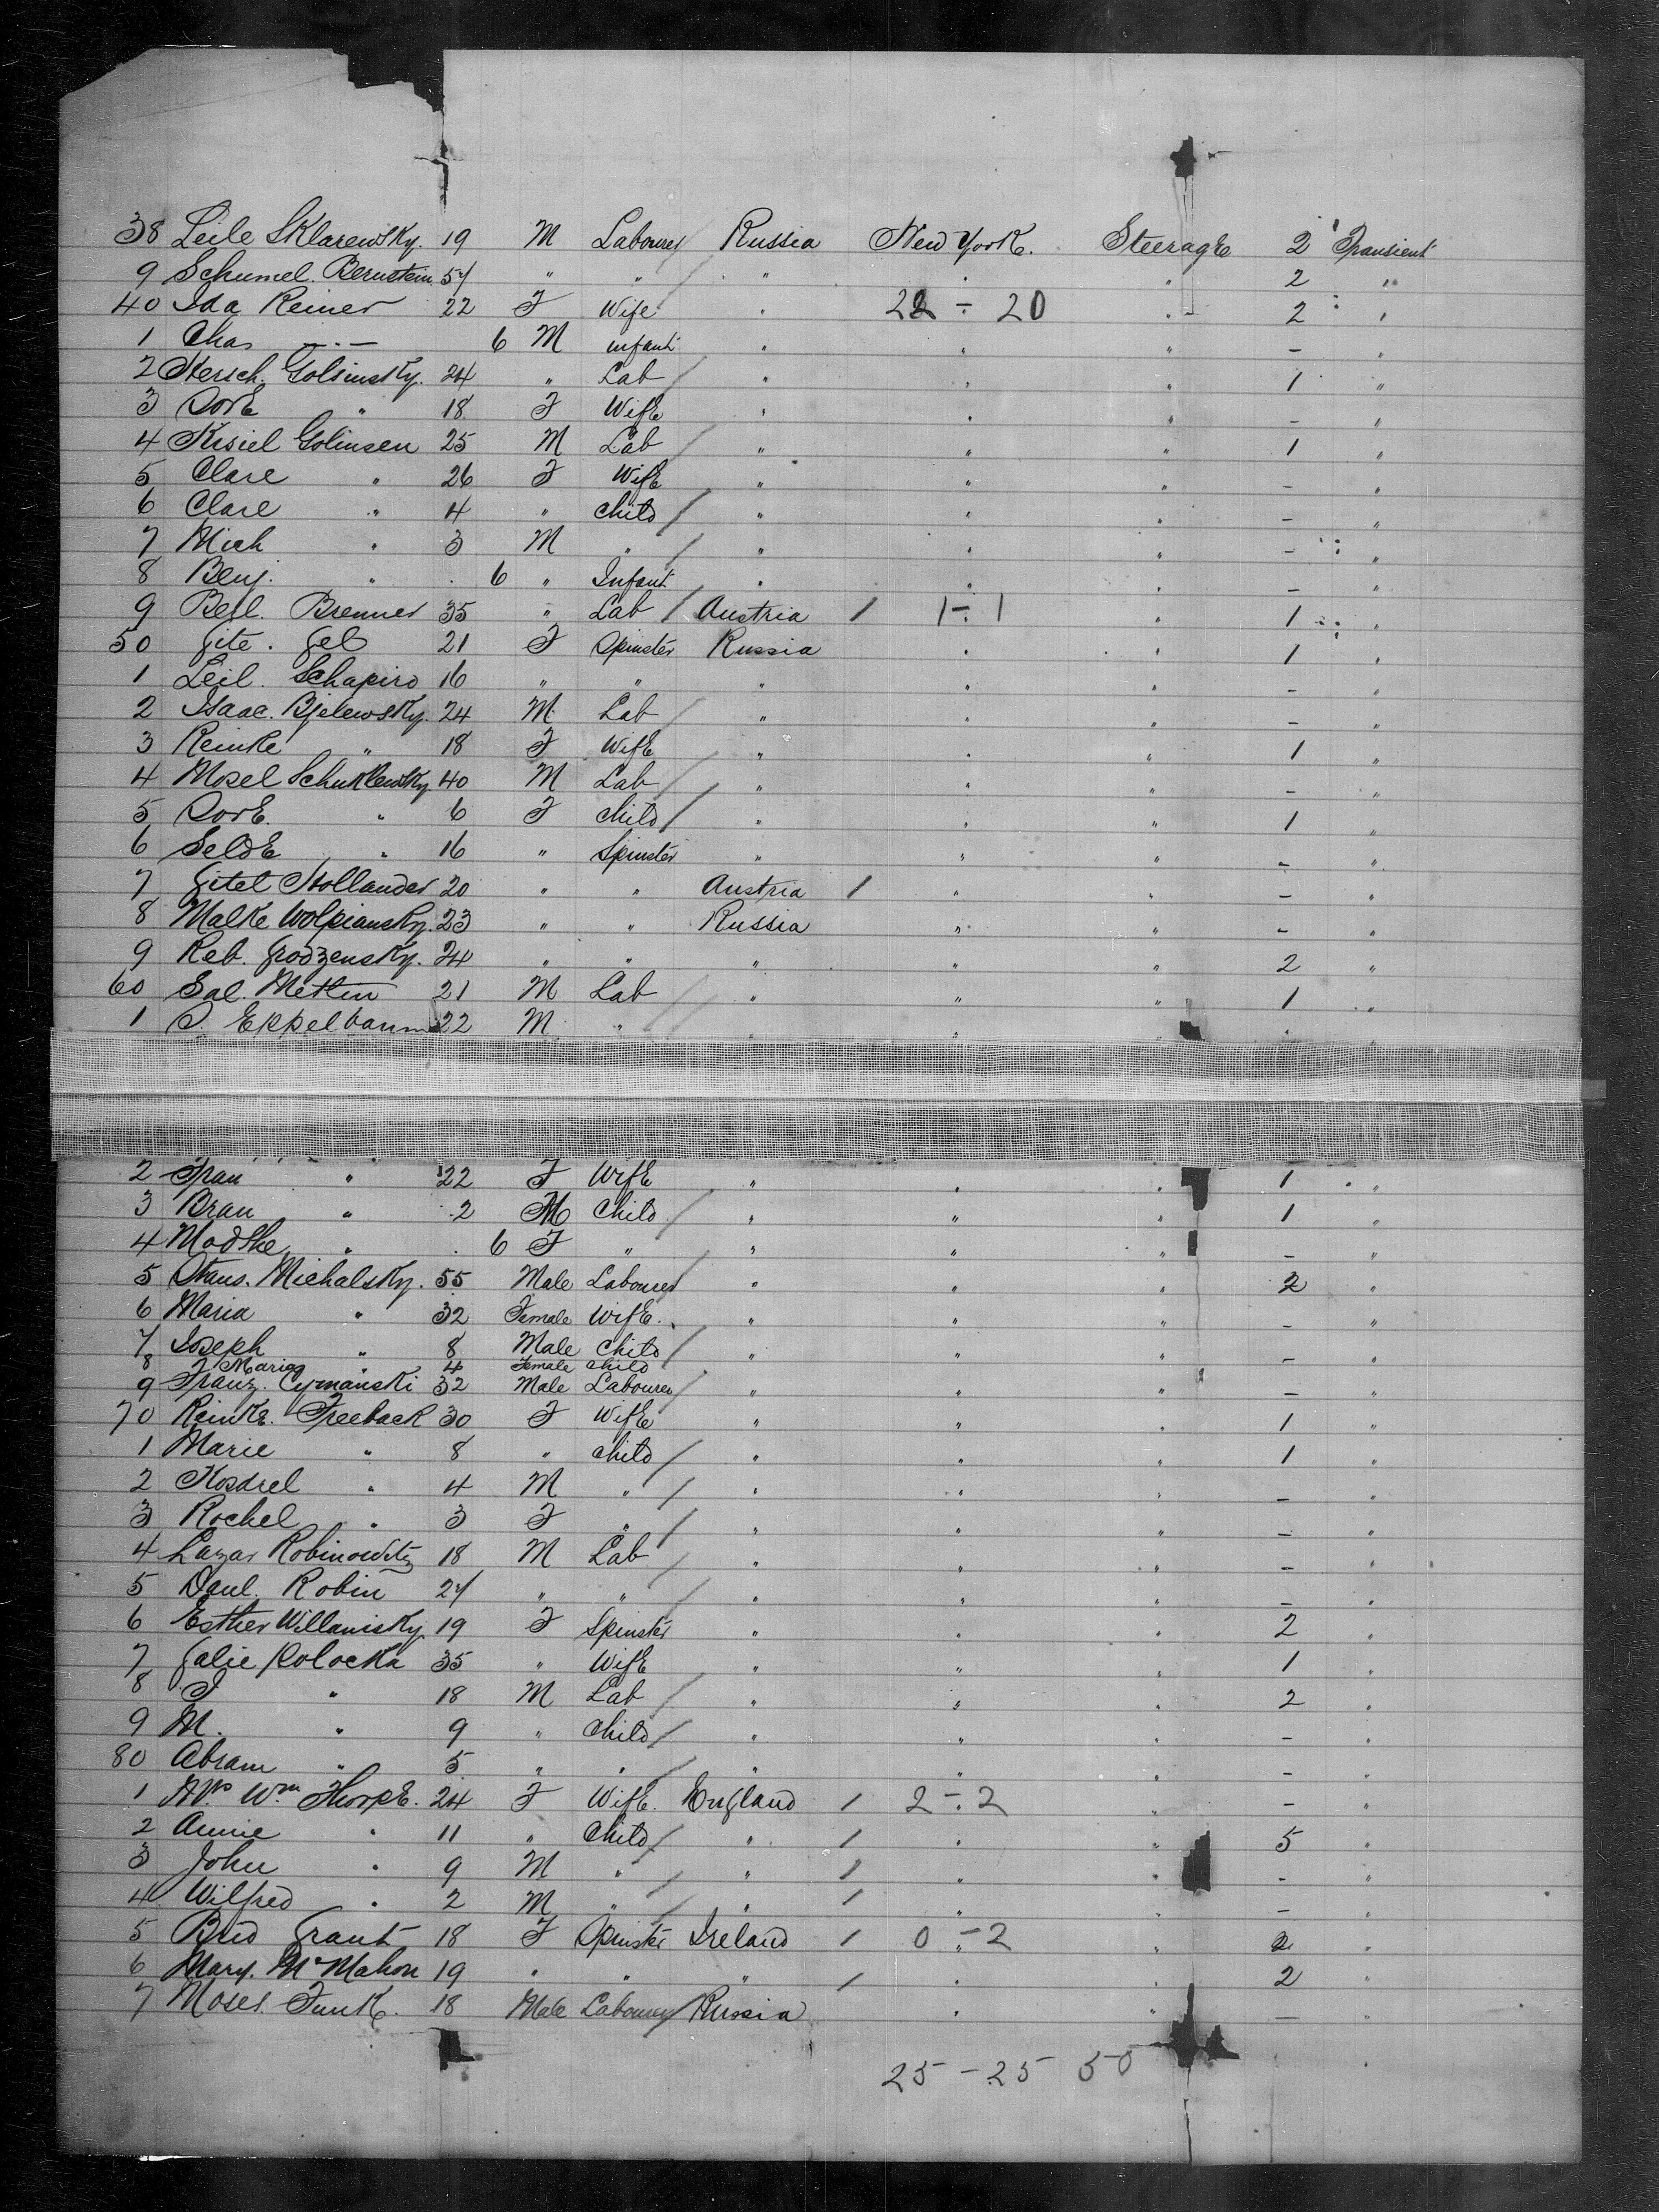 38 Leile Sklarewsky. 19 M Labourer / Russia New York. Steerage 2 Transient
9 Schumel. Bernstein. 54 " " / " " " 2 "
40 Ida Reiner 22 F Wife " 22 - 20 " 2 "
1 Chas — 6 M infant " " " - "
2 Hersch. Golsinsky. 24 " Lab / " " " 1 "
3 Sore " 18 F Wife " " " - "
4 Kisiel Golinsen 25 M Lab / " " " 1 "
5 Clare " 26 F Wife " " " - "
6 Clare " 4 " child / " " " - "
7 Mich " 3 M " / " " " - "
8 Benj. " 6 " Infant " " " - "
9 Beil. Brenner 35 " Lab / Austria 1 1 - 1 " 1 "
50 Gite. Gel 21 F Spinster Russia " " 1 "
1 Leil. Schapiro 16 " " " " " - "
2 Isaac. Bjelewsky. 24 M Lab / " " " - "
3 Reinke " 18 F Wife " " " 1 "
4 Mosel Schuklewsky 40 M Lab / " " " - "
5 Sore. " 6 F child / " " " 1 "
6 Selde " 16 " Spinster " " " - "
7 Gitel Hollander 20 " " Austria 1 " " - "
8 Malke Wolpiansky. 23 " " Russia " " - "
9 Reb. Grodzensky. 24 " " " " " 2 "
60 Sal. Metlin 21 M Lab / " " " 1 "
1 S. Eppelbaum 22 M " / " " "
2 Fran " 22 F Wife " " " 1 "
3 Bran " 2 M Child / " " " 1 "
4 Modske " 6 F " / " " " - "
5 Stans. Michalsky. 55 Male Labourer / " " " 2 "
6 Maria " 32 Female Wife. " " " - "
7 Joseph " 8 Male Child / " " " - "
8 Maria " 4 Female child
9 Franz. Cymanski 32 Male Labourer / " " " - "
70 Reinke. Freeback 30 F Wife " " " 1 "
1 Marie " 8 " child / " " " 1 "
2 Kosdrel " 4 M " / " " " - "
3 Rochel " 3 F " / " " " - "
4 Lazar Robinowitz 18 M Lab / " " " - "
5 Paul. Robin 24 " " / " " " - "
6 Esther Willanisky 19 F Spinster " " " 2 "
7 Galie Polocka 35 " Wife " " " 1 "
8 J " 18 M Lab / " " " 2 "
9 M. " 9 " Child / " " " - "
80 Abram " 5 " " / " " " - "
1 Mrs Wm Thorpe. 24 F Wife. England 1 2 - 2 " - "
2 Annie " 11 " Child / " 1 " " 5 "
3 John " 9 M " / " 1 " " - "
4 Wilfred " 2 M " / " 1 " " - "
5 Brid Grant 18 F Spinster Ireland 1 0 - 2 " 2 "
6 Mary. McMahon 19 " " " 1 " " 2 "
7 Moses Funk. 18 Male Labourer / Russia " " — "
25 - 25 50